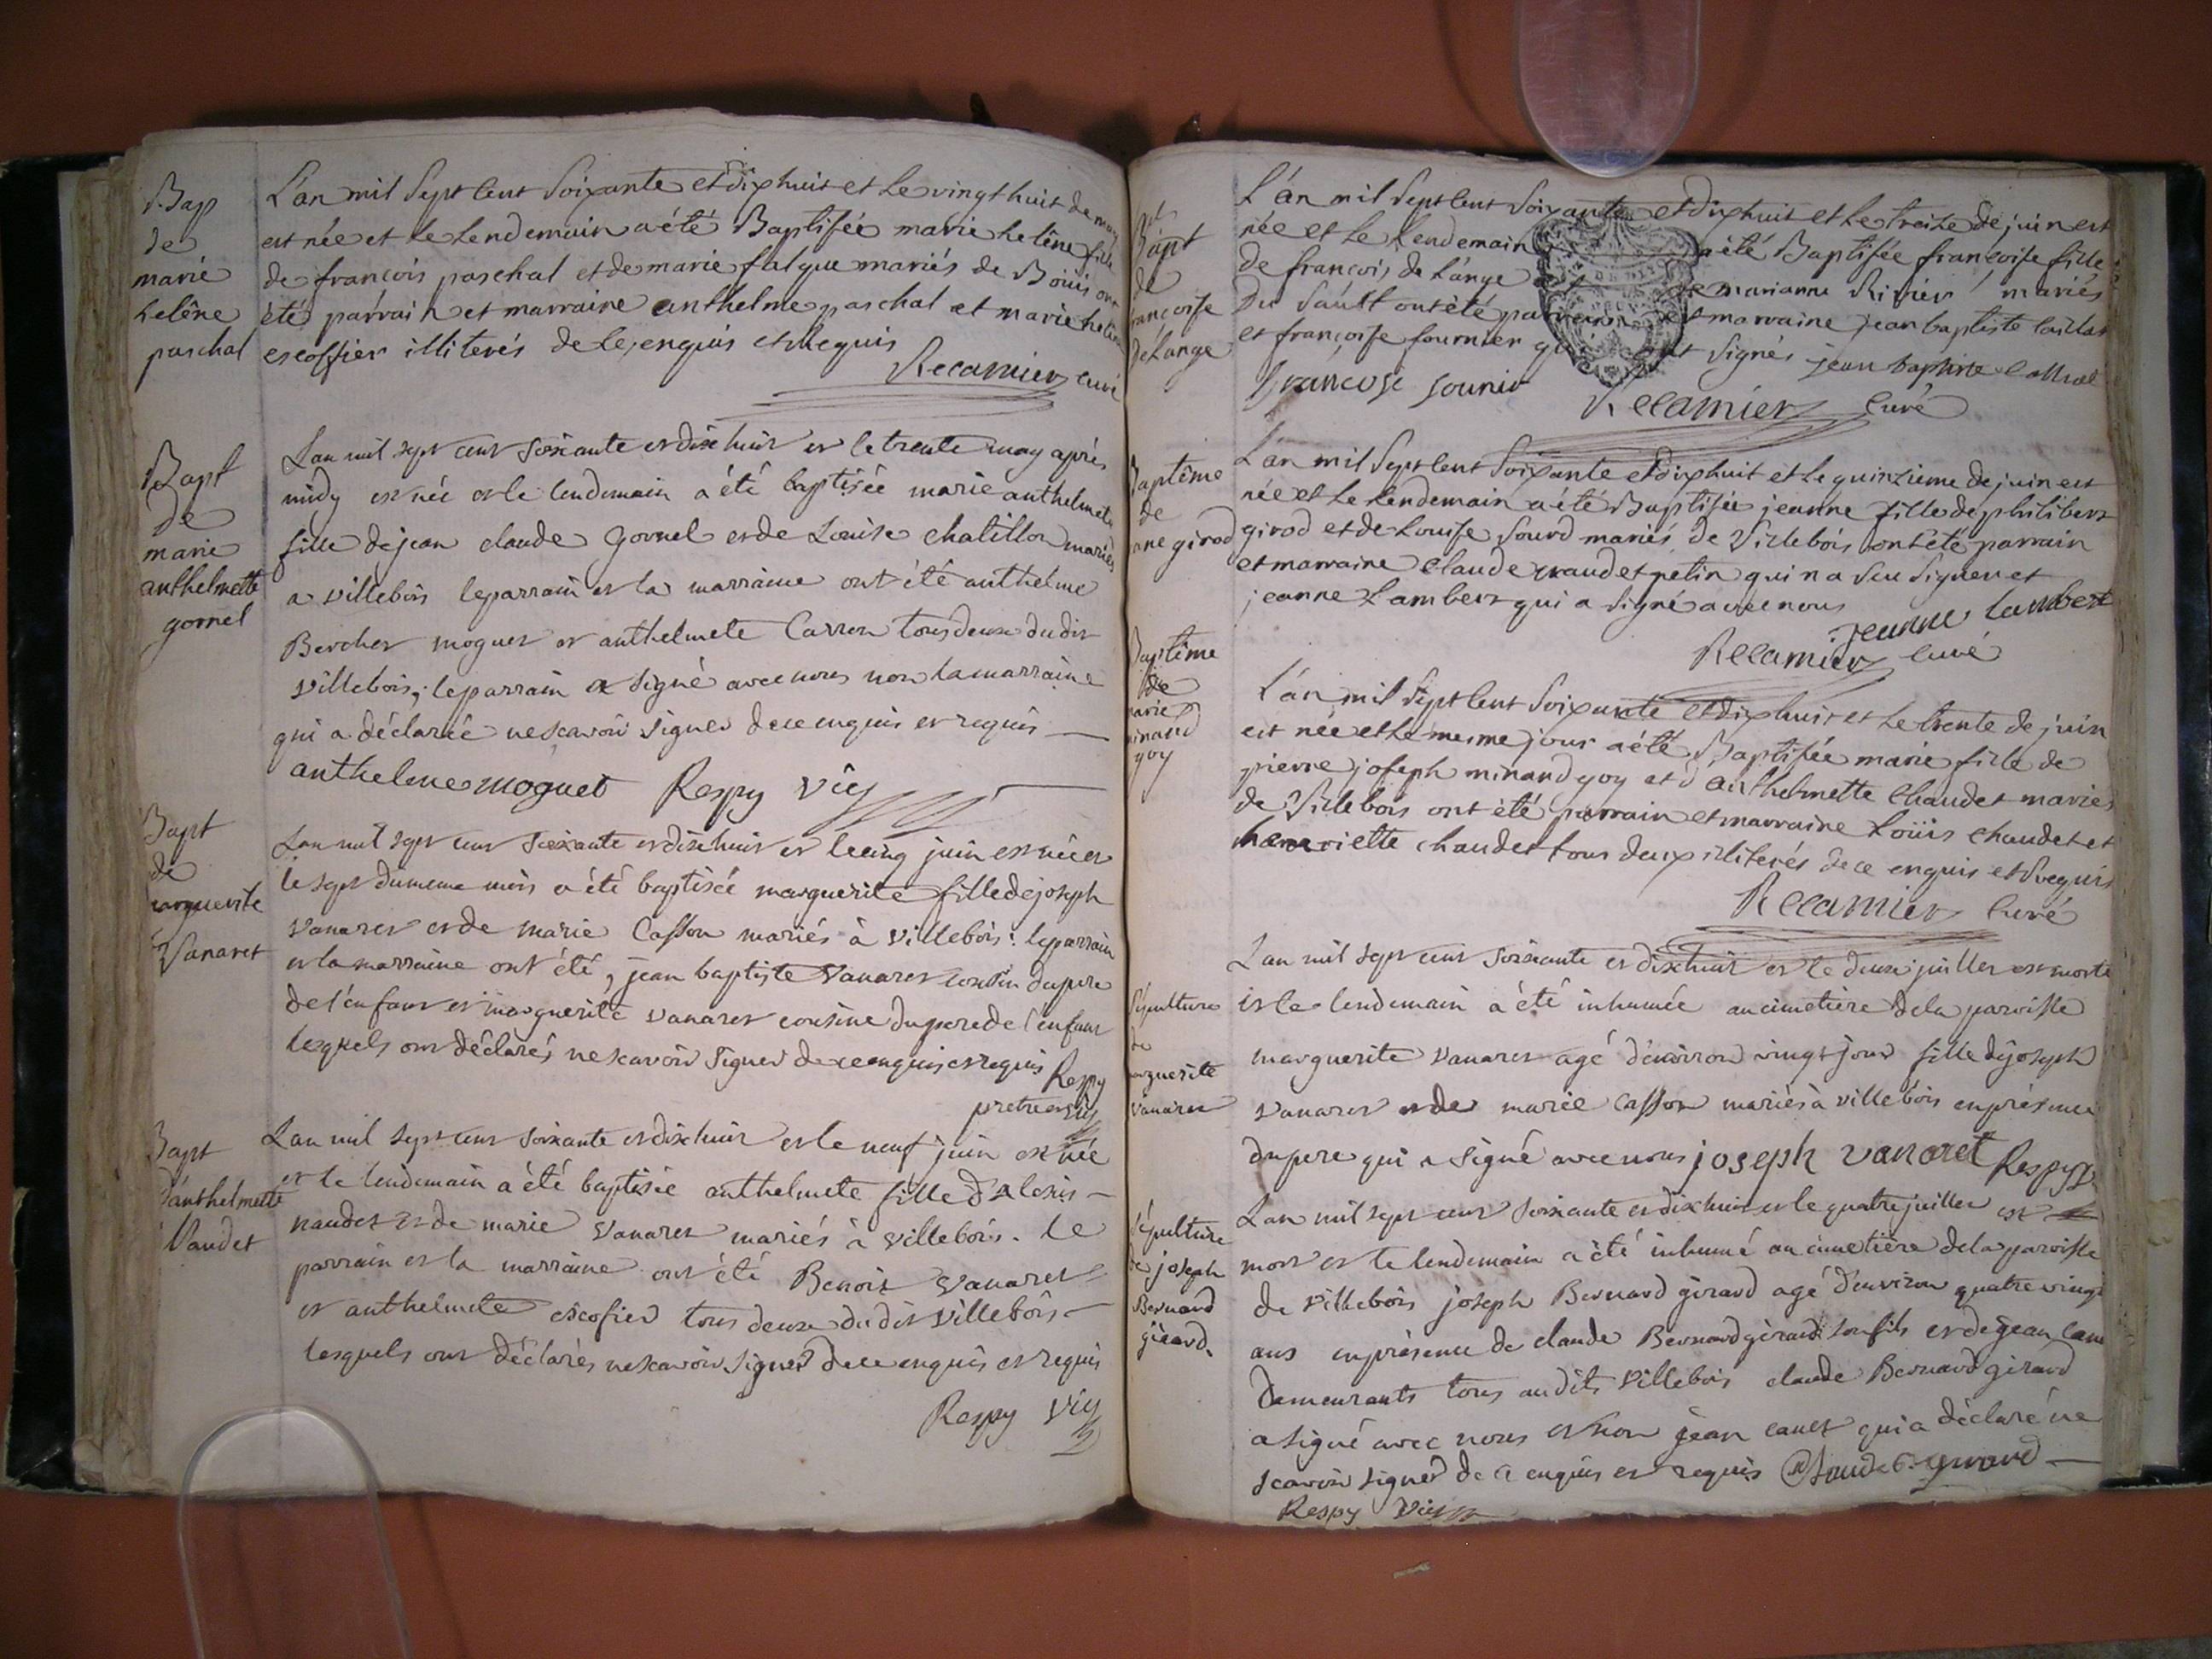 Bap
de
marie
helêne
paschal
L'an mil Sept Cent Soixante et dix huit et Le vingt huit de may
est née et Le Lendemain a été Baptisée marie helêne fille
de françois paschal et de marie falque mariés de Boüis ont
été parrain et marraine anthelme paschal et marie helene
escoffier illiterés de Ce enquis et Requis
Recamier Curé
Bapt
de
marie
anthelmette
gornel
L'an mil sept cent soixante et dix huit et le trente may après
midy est née et le lendemain a été baptisée marie anthelmete
fille de jean claude gornel et de Louise chatillon mariés
a villebois le parrain et la marraine ont été anthelme
Bercher moguet et anthelmete Carron tous deux du dit
villebois, le parrain a signé avec nous non la marraine
qui a déclarée ne scavoir signer de ce enquis et requis
anthelme moguet Respy vic
Bapt
de
marguerite
Vanaret
L'an mil sept cent soixante et dix huit et le cinq juin est née et
le sept du meme mois a été baptisée marguerite fille de joseph
vanaret et de marie Casson mariés à villebois : le parrain
et la marraine ont été, jean baptiste Vanaret cousin du pere
de l'enfant et marguerite vanaret cousine du pere de l'enfant
lesquels ont déclarés ne scavoir signer de ce enquis et requis Respy
pretre et vic
Bapt
d'anthelmette
Naudet
L'an mil sept cent soixante et dix huit et le neuf juin est née
et le lendemain a été baptisée anthelmete fille d'Alexis
naudet et de marie vanaret mariés à villebois. le
parrain et la marraine ont été Benoit vanaret
et anthelmete escofier tous deux du dit villebois
lesquels ont déclarés ne scavoir signer de ce enquis et requis
Respy vic
Bapt
de
françoise
de Lange
L'an mil Sept Cent Soixante et dix huit et Le treize de juin est
née et Le Lendemain a été Baptisée françoise fille
de françois de Lange et de marianne Rivier mariés
du Sault ont été parrain et marraine jean baptiste
et françoise fournier qui ont signés jean baptiste
françoise
Recamier Curé
Baptême
de
jeanne girod
L'an mil Sept Cent Soixante et dix huit et Le quinzieme de juin est
née et Le Lendemain a été Baptisée jeanne fille de philibert
girod et de Louise Sourd mariés de Villebois ont été parrain
et marraine Claude petin qui n'a Seu Signer et
jeanne Lambert qui a Signé avec nous
jeanne lambert
Recamier Curé
Baptême
de
marie
minand
goy
L'an mil Sept Cent Soixante et dix huit et Le trente de juin
est née et Le mesme jour a été Baptisée marie fille de
pierre joseph minand goy et d'anthelmette Chaudet mariés
de Villebois ont été parrain et marraine Loüis chaudet et
henriette chaudet tous deux illiterés de ce enquis et Requis
Recamier Curé
Sépulture
de
marguerite
vanaret
L'an mil sept cent soixante et dix huit et le deux juillet est morte
et le lendemain a été inhumée au cimetière de la paroisse
marguerite vanaret agé d'environ vingt jour fille de joseph
vanaret et de marie Casson mariés à villebois en présence
du pere qui a signé avec nous joseph vanaret Respy
Sépulture
de joseph
Bernard
girard.
L'an mil sept cent soixante et dix huit et le quatre juillet est
mort et le lendemain a été inhumé au cimetière de la paroisse
de villebois joseph Bernard girard agé d'environ quatre vingt
ans en présence de claude Bernard girard son fils et de jean
demeurants tous au dits villebois claude Bernard girard
a signé avec nous et non jean qui a déclaré ne
scavoir signer de ce enquis et requis Claude B. girard
Respy vic